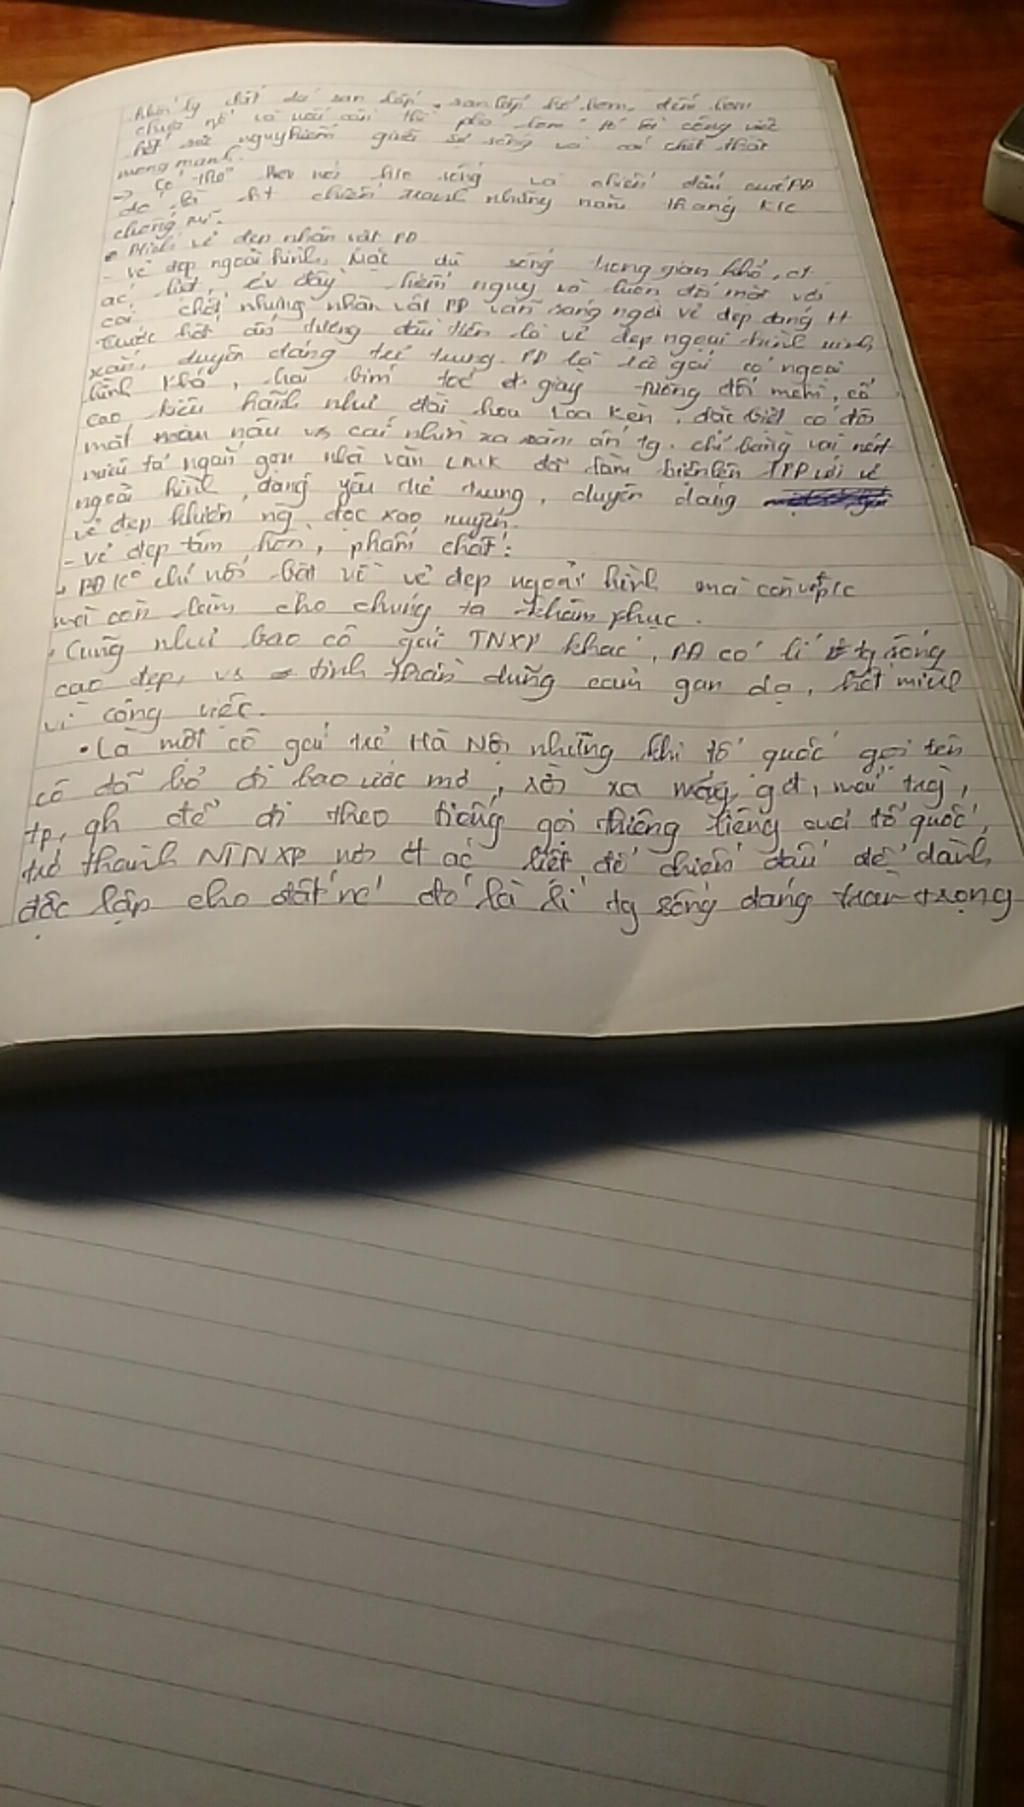 khối lg đất đá san lấp, san lấp hố bom, đếm bom
chưa nổ và nếu cần thì phá bom đó là công việc
hết sức nguy hiểm giữa sự sống và cái chết thật
mong manh.
→ Có thể nói h/c sống và chiến đấu của PĐ
đó là ht chiến tranh những năm tháng k/c
chống mĩ.
vẻ đẹp nhân vật PĐ
- vẻ đẹp ngoài hình: Mặc dù sống trong gian khổ, ct
ác liệt, cv đầy hiểm nguy và luôn đối mặt với
cái chết nhưng nhân vật PĐ vẫn sáng ngời vẻ đẹp đáng tt
trước hết ấn tượng đầu tiên là vẻ đẹp ngoại hình xinh
xắn, duyên dáng trẻ trung. PĐ là cô gái có ngoại
hình khá, hai bím tóc dày tương đối mềm, cổ
cao kiêu hãnh như đài hoa loa kèn, đặc biệt có đôi
mắt màu nâu vs cái nhìn xa xăm ấn tg. chỉ bằng vài nét
miêu tả ngắn gọn nhà văn LMK đã làm hiện lên PĐ với vẻ
ngoài hình, đáng yêu trẻ trung, duyên dáng
vẻ đẹp khiến ng đọc xao xuyến.
- vẻ đẹp tâm hồn, phẩm chất:
PĐ k chỉ nổi bật về vẻ đẹp ngoại hình mà còn p/c
mà còn làm cho chúng ta khâm phục.
Cũng như bao cô gái TNXP khác, PĐ có lí tg sống
cao đẹp, vs tinh thần dũng cảm gan dạ, hết mình
vì công việc.
• Là một cô gái trẻ Hà Nội nhưng khi tổ quốc gọi tên
cô đã bỏ đi bao ước mơ, rời xa gđ, mái trg,
tp, gh để đi theo tiếng gọi thiêng liêng của tổ quốc,
trở thành NTNXP nơi ct ác liệt để chiến đấu để dành
độc lập cho đất nc đó là lí tg sống đáng trân trọng